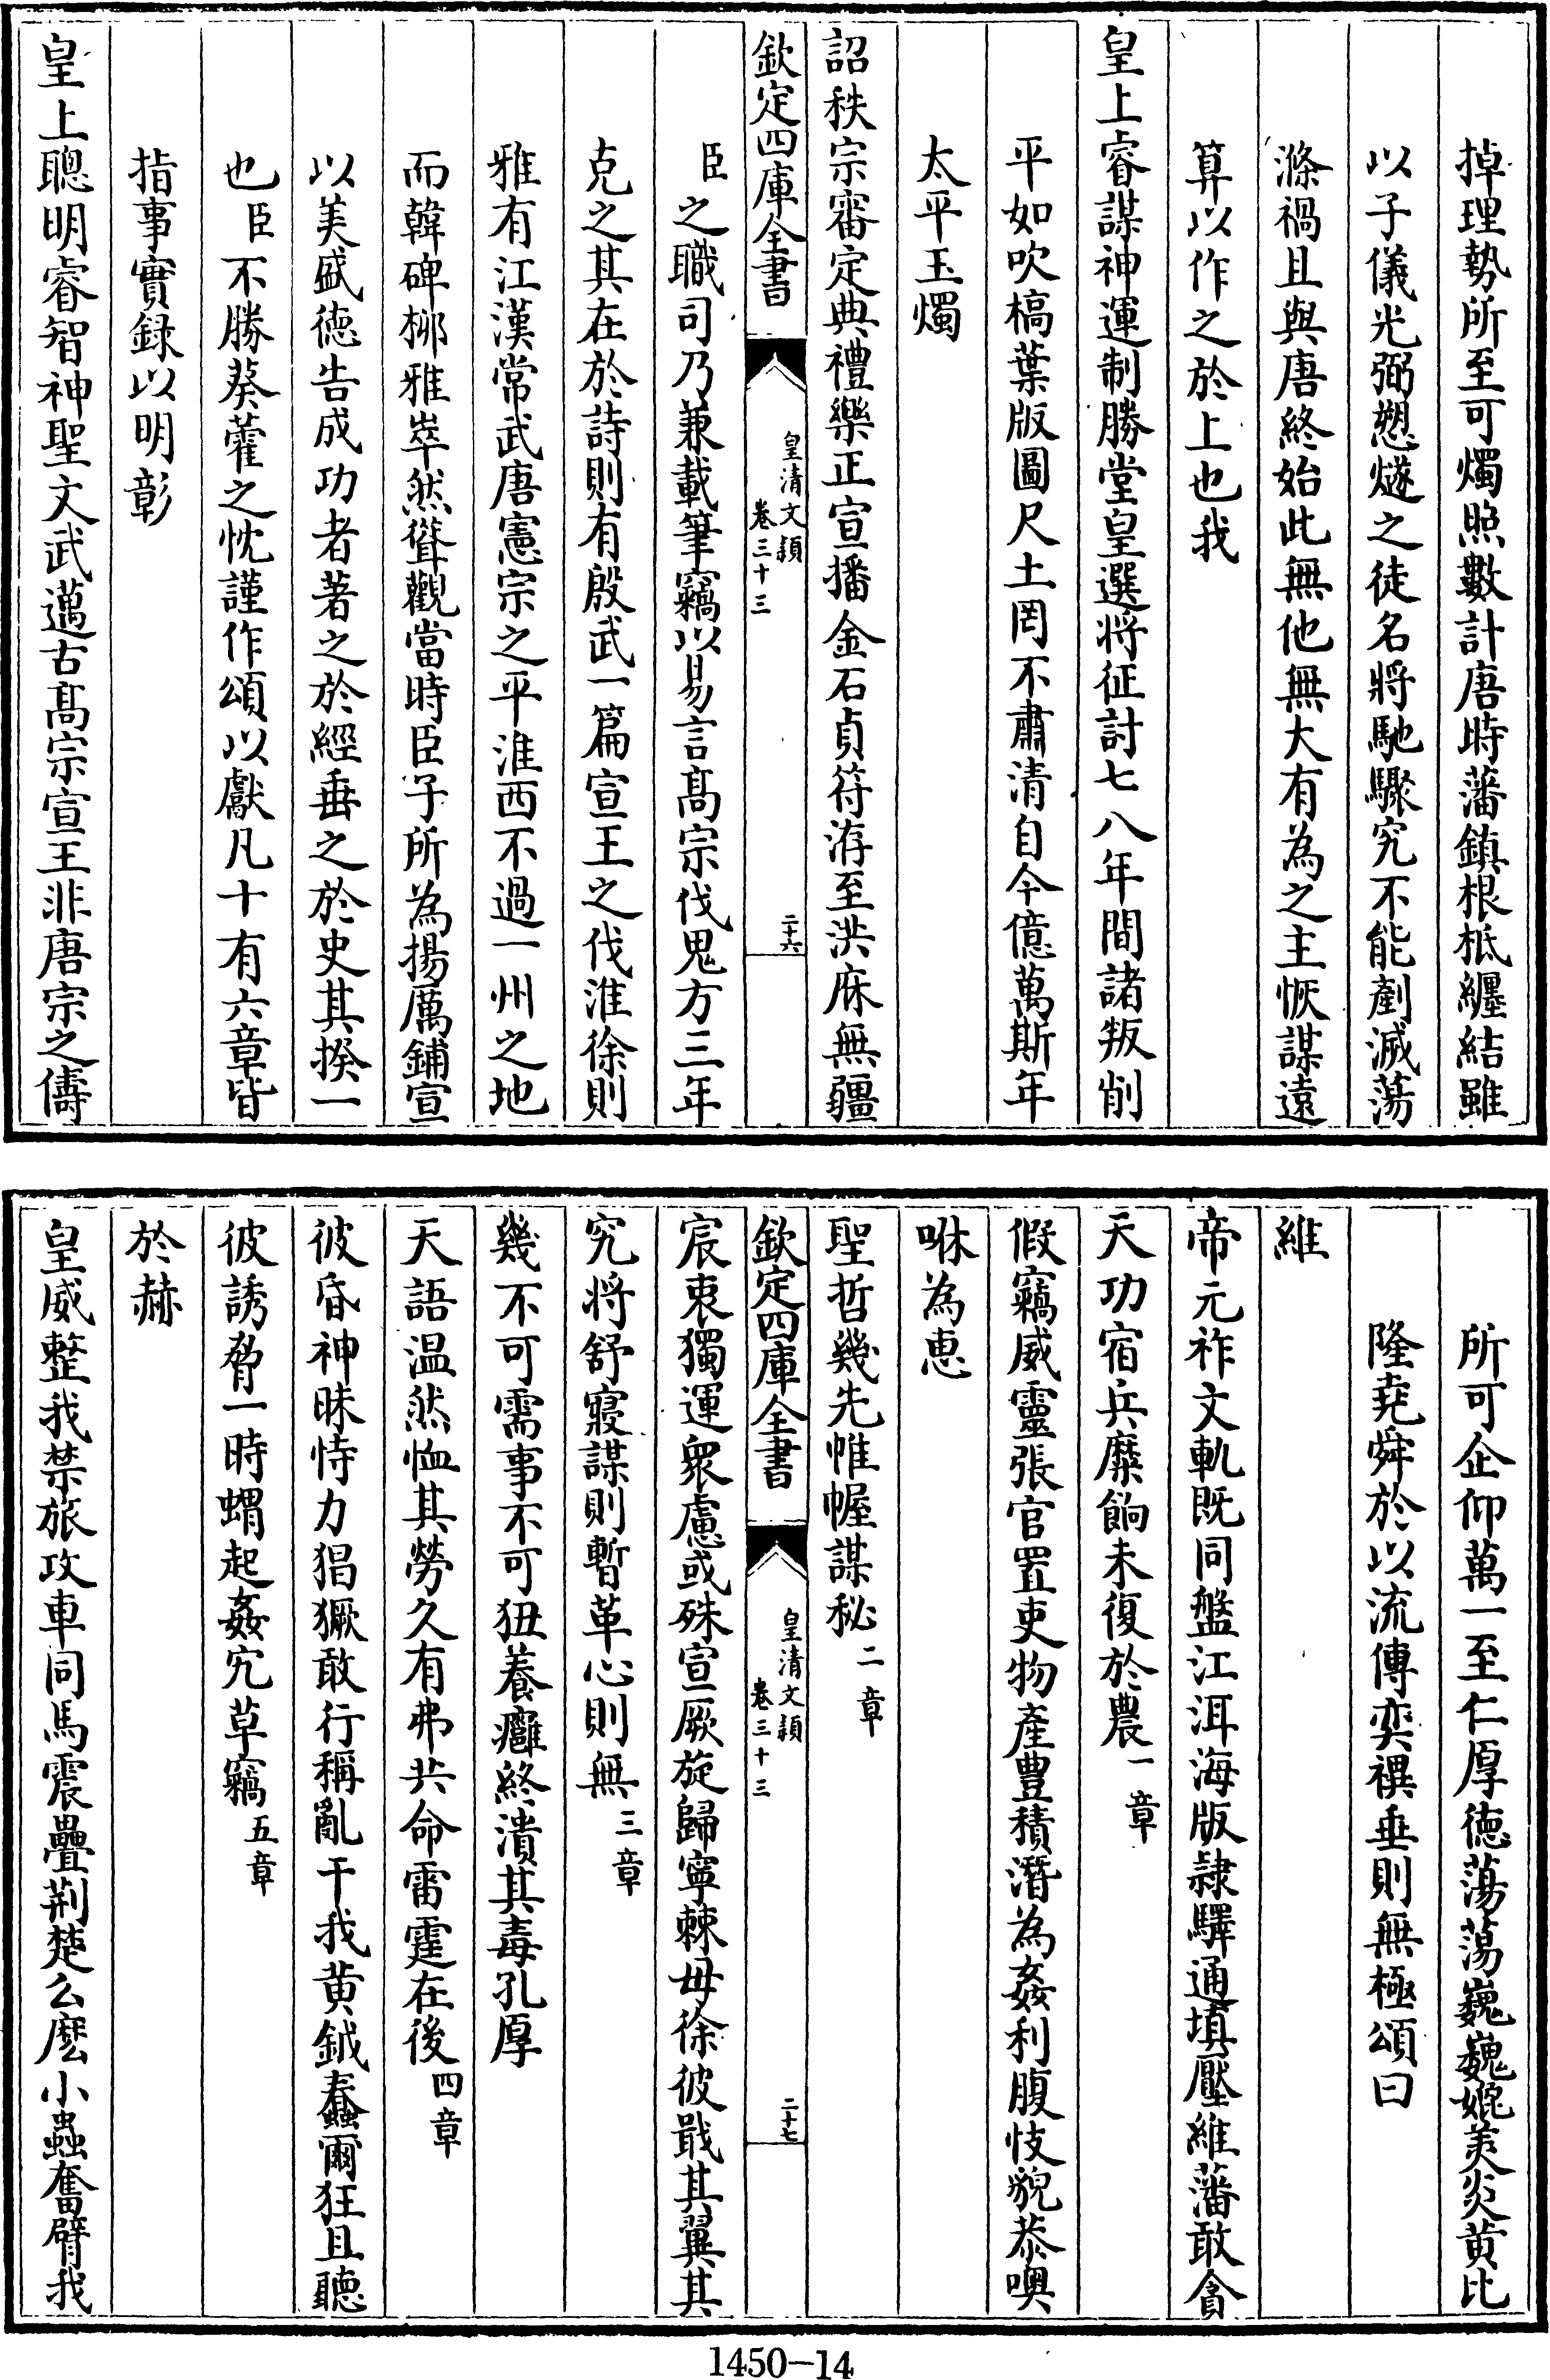 掉理勢所至可燭照數計唐時藩鎮根柢纒結雖
以子儀光弼愬燧之徒名將馳驟究不能剷滅蕩
滌禍且與唐終始此無他無大有為之主恢謀遠
算以作之於上也我
皇上睿謀神運制勝堂皇選將征討七八年間諸叛削
平如吹槁葉版圖尺土罔不肅清自今億萬斯年
太平玉燭
詔秩宗審定典禮樂正宣播金石貞符洊至洪庥無疆
欽定四庫全書
皇清文頴
卷三十三
二十六
臣之職司乃兼載筆竊以易言髙宗伐鬼方三年
克之其在於詩則有殷武一篇宣王之伐淮徐則
雅有江漢常武唐憲宗之平淮西不過一州之地
而韓碑柳雅崒然聳觀當時臣子所為揚厲鋪宣
以美盛徳告成功者著之於經垂之於史其揆一
也臣不勝葵藿之忱謹作頌以獻凡十有六章皆
指事實録以明彰
皇上聰明睿智神聖文武邁古髙宗宣王非唐宗之儔
所可企仰萬一至仁厚徳蕩蕩巍巍媲羙炎黄比
隆堯舜於以流傳奕禩垂則無極頌曰
維
帝元祚文軌既同盤江洱海版隷驛通填壓維藩敢貪
天功宿兵糜餉未復於農一章
假竊威靈張官置吏物產豊積潛為姦利腹忮貌恭噢
咻為恵
聖哲幾先帷幄謀秘二章
欽定四庫全書
皇清文頴
卷三十三
二十七
宸衷獨運衆慮或殊宣厥旋歸寧棘毋徐彼戢其翼其
究將舒寢謀則暫革心則無三章
幾不可需事不可狃養癰終潰其毒孔厚
天語温然恤其勞久有弗共命雷霆在後四章
彼昏神昧恃力猖獗敢行稱亂干我黄鉞蠢爾狂且聽
彼誘脅一時蝟起姦宄草竊五章
於赫
皇威整我禁旅攻車同馬震疊荆楚么麽小蟲奮臂我
1450—14